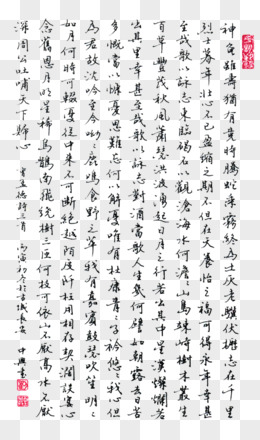 神龜雖壽猶有竟時騰蛇乘霧終為土灰老驥伏櫪志在千里
烈士暮年壯心不已盈縮之期不但在天養怡之福可得永年幸甚
至哉歌以詠志東臨碣石以觀滄海水何澹〻山島竦峙樹木叢生
百草豐茂秋風蕭瑟洪波湧起日月之行若出其中星漢燦爛若
出其里幸甚至哉歌以詠志對酒當歌人生幾何譬如朝露去日苦
多慨當以慷憂思難忘何以解憂唯有杜康青〻子衿悠〻我心但
為君故沈吟至今呦〻鹿鳴食野之苹我有嘉賓鼓瑟吹笙明〻
如月何時可輟憂從中來不可斷絕越陌度阡枉用相存契闊談讌心
念舊恩月明星稀烏鵲南飛繞樹三匝何枝可依山不厭高水不厭
深周公吐哺天下歸心 曹孟德詩三首 丙寅初冬於古城長安 中興書